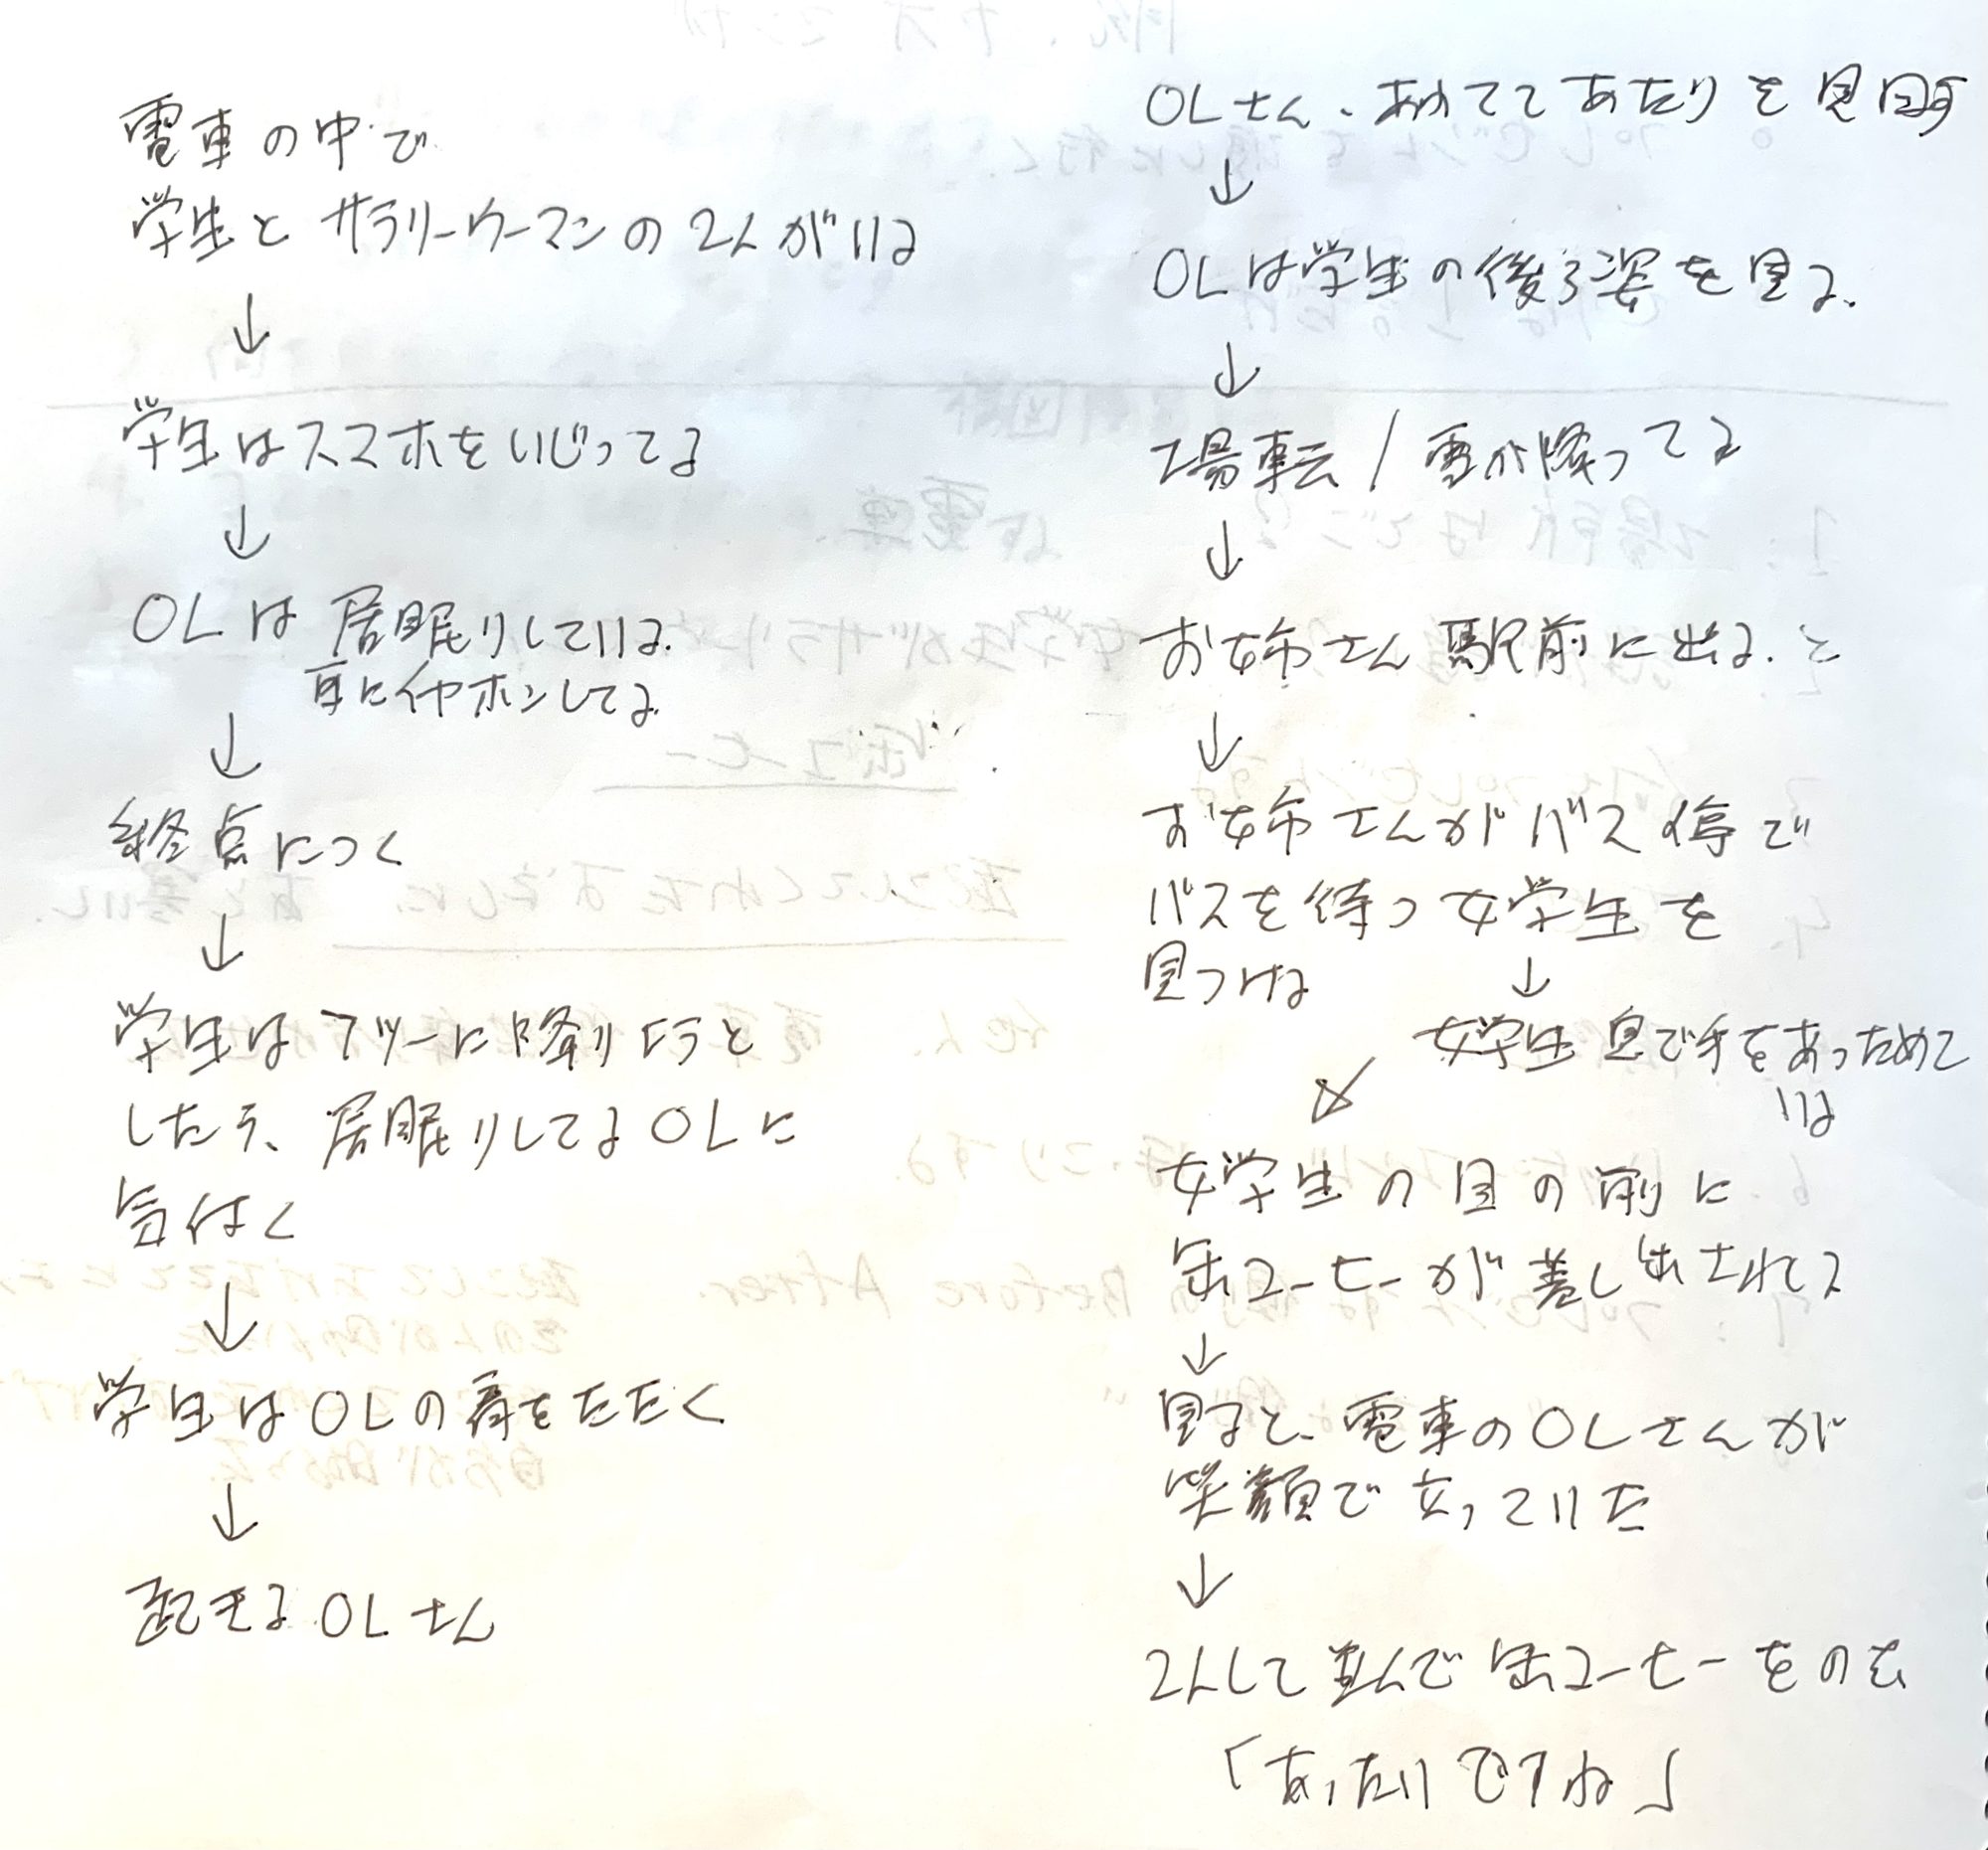 電車の中で
学生とサラリーウーマンの2人がいる
↓
学生はスマホをいじってる
↓
OLは居眠りしている
耳にイヤホンしてる
↓
終点につく
↓
学生はフツーに降りようと
したら、居眠りしてるOLに
気付く
↓
学生はOLの肩をたたく
↓
起きるOLさん
OLさん、あわててあたりを見回す
↓
OLは学生の後ろ姿を見る、
↓
場転/雪が降ってる
↓
お姉さん駅前に出る、と
↓
お姉さんがバス停で
バスを待つ女学生を
見つける
↓
女学生息で手をあっためて
いる
↓
女学生の目の前に
缶コーヒーが差し出されてる
↓
見ると、電車のOLさんが
笑顔で立っていた
↓
2人して並んで缶コーヒーをのむ
「あったかいですね」